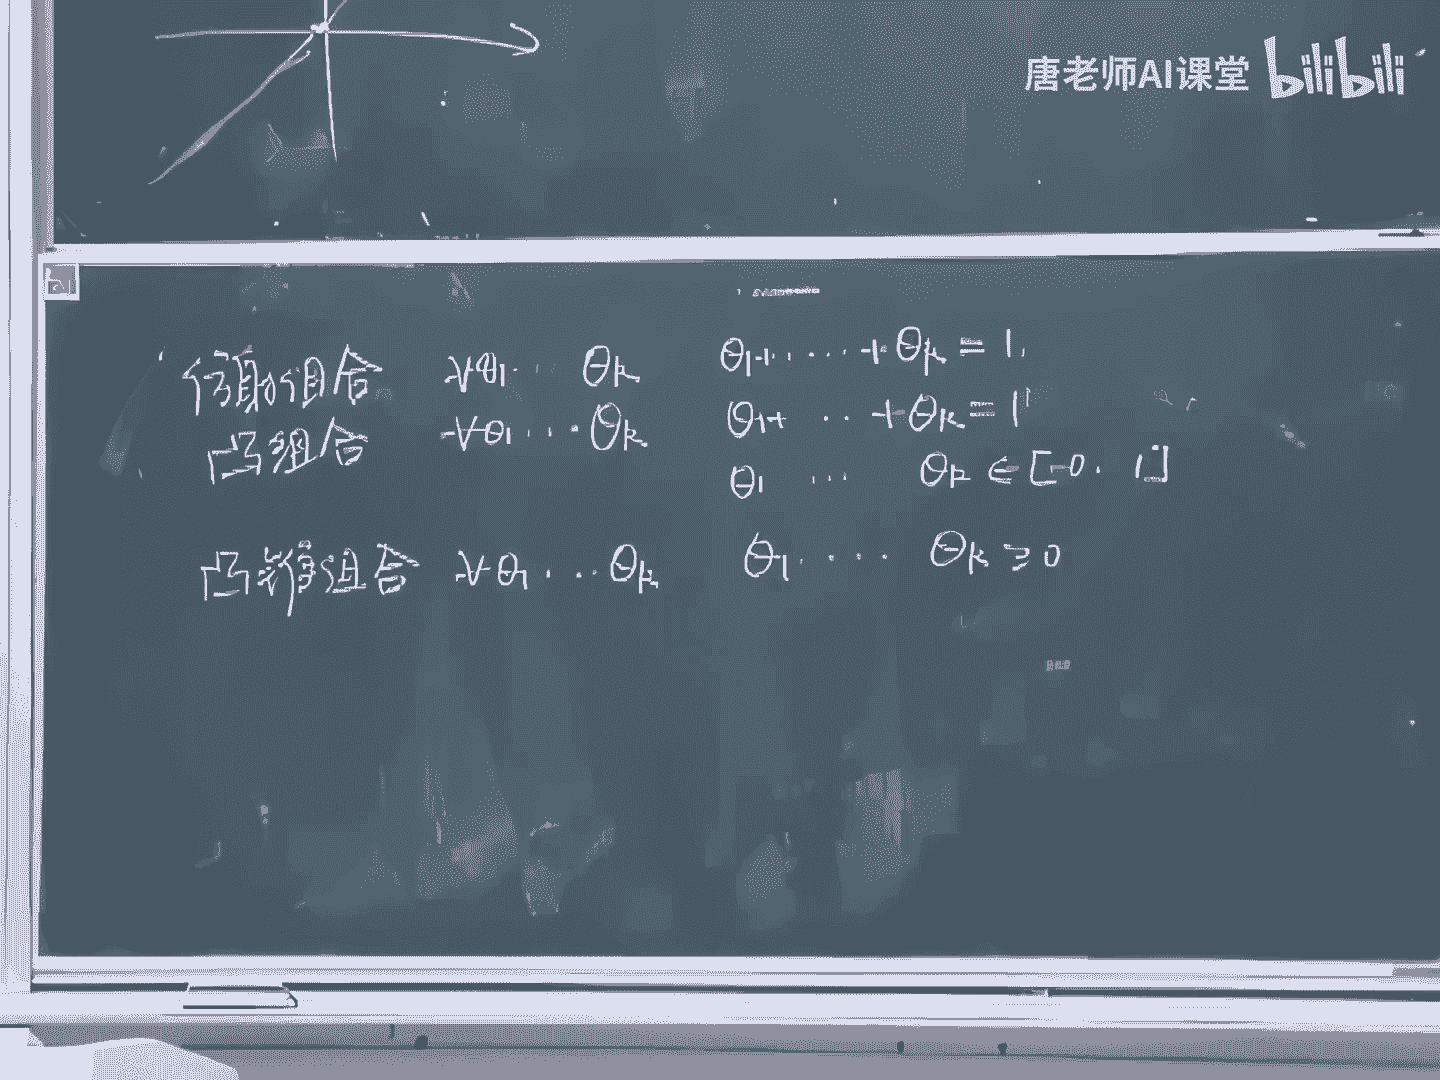 唐老师AI课堂 bilibili
仿射组合 ∀θ₁ ··· θₖ θ₁+ ····· +θₖ = 1.
凸组合 ∀θ₁ ··· θₖ θ₁+ ·· +θₖ = 1
θ₁ ··· θₖ ∈ [0. 1]
凸锥组合 ∀θ₁ ··· θₖ θ₁ ···· θₖ ≥ 0